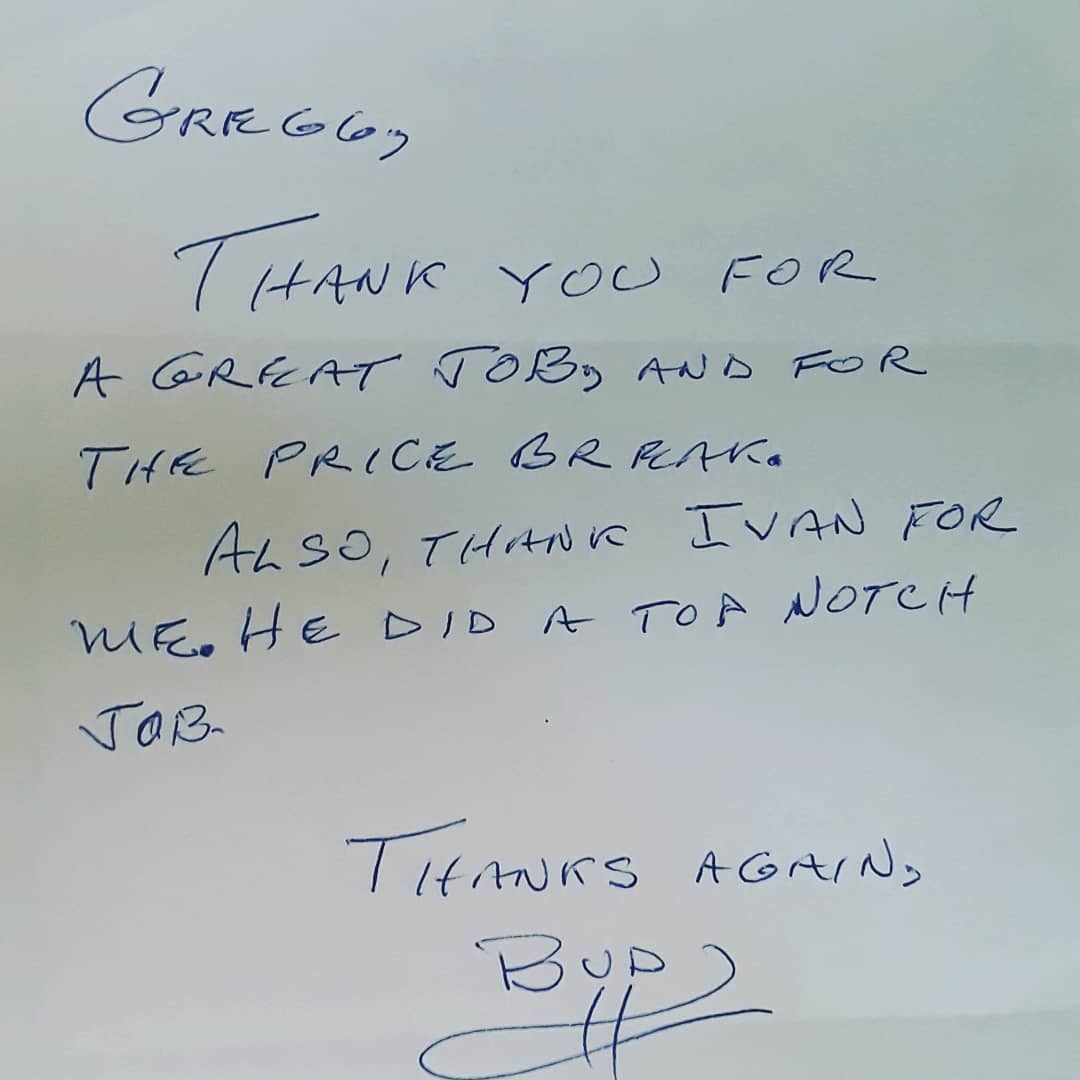 GREGG,
THANK YOU FOR
A GREAT JOB, AND FOR
THE PRICE BREAK.
ALSO, THANK IVAN FOR
ME. HE DID A TOP NOTCH
JOB.
THANKS AGAIN,
BUD